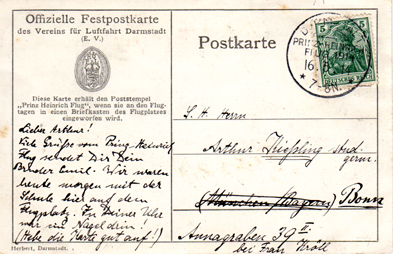 Offizielle Festpostkarte
des Vereins für Luftfahrt Darmstadt
(E. V.)
Diese Karte erhält den Poststempel
„Prinz Heinrich Flug“, wenn sie an den Flug-
tagen in einen Briefkasten des Flugplatzes
eingeworfen wird.
Lieber Arthur!
Viele Grüße vom Prinz-Heinrich
Flug sendet Dir Dein
Bruder Emil. Wir waren
heute morgen mit der
Schule hier auf dem
Flugplatz. In Deiner Uhr
war ein Nagel drin!
(Hebe die Karte gut auf!)
Herbert, Darmstadt.
Postkarte
5
PRINZ-HEINR
FLUG
16.
* 7-8N.
S. H. Herrn
Arthur Kießling stud
germ.
(München (Bayern) Bonn
Annagraben 39 II
bei Frau Kröll